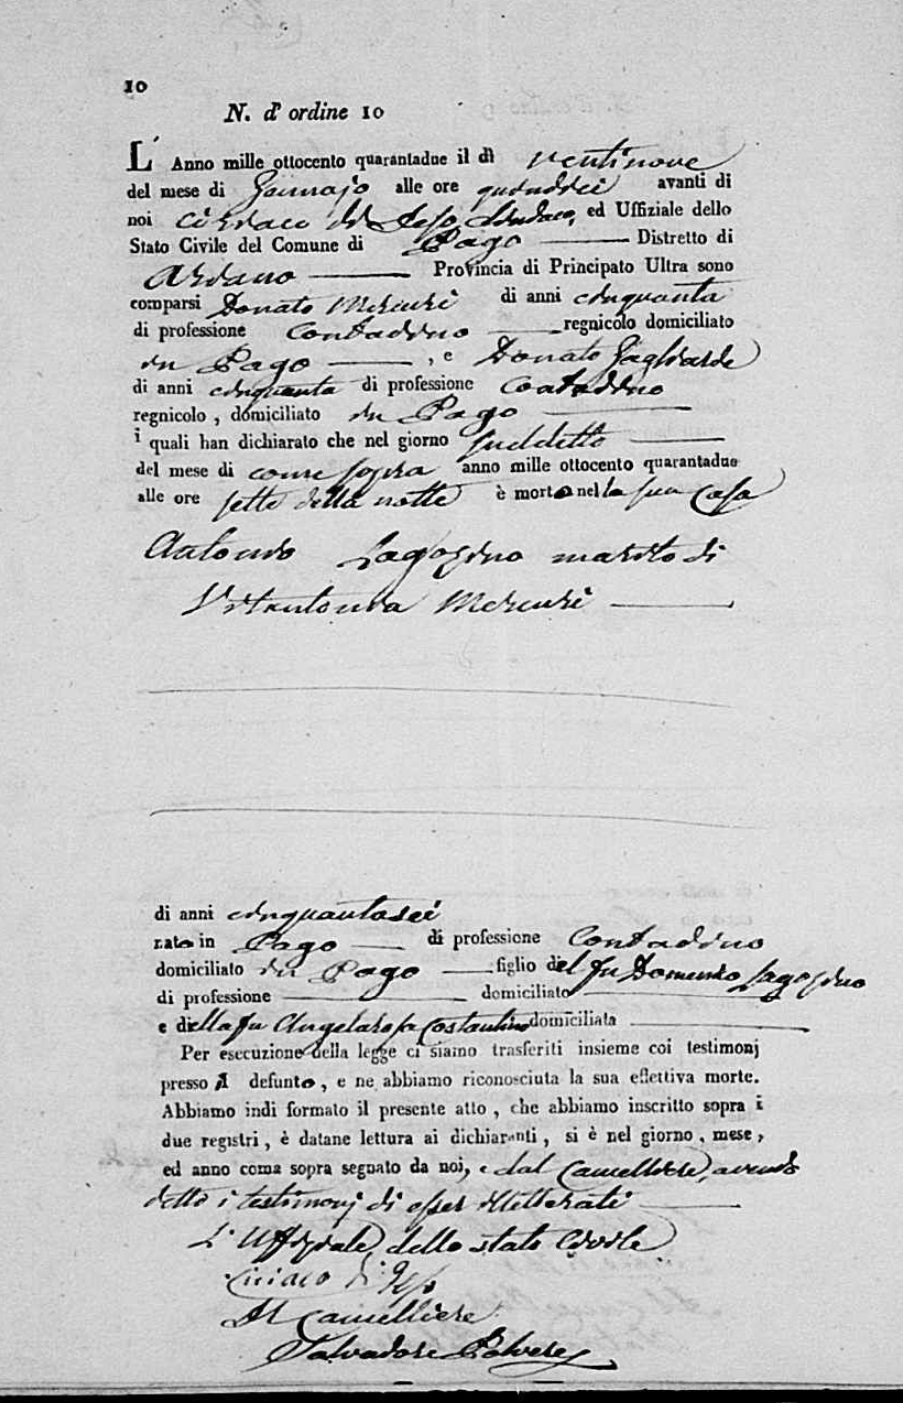 10
N. d' ordine 10
L' Anno mille ottocento quarantadue il dì ventinove
del mese di Gennajo alle ore quindici avanti di
noi Ciriaco di Geso Sindaco, ed Uffiziale dello
Stato Civile del Comune di Pago Distretto di
Ariano Provincia di Principato Ultra sono
comparsi Donato Mercuri di anni cinquanta
di professione Contadino regnicolo domiciliato
in Pago , e Donato Gagliarde
di anni cinquanta di professione Contadino
regnicolo , domiciliato in Pago
i quali han dichiarato che nel giorno suddetto
del mese di come sopra anno mille ottocento quarantadue
alle ore sette della notte è morto nella sua casa
Antonio marito di
Vitantonia Mercuri
di anni cinquantasei
nato in Pago di professione Contadino
domiciliato in Pago figlio del fu Domenico
di professione domiciliato
e della fu Angelarosa Costantino domiciliata
Per esecuzione della legge ci siamo trasferiti insieme coi testimonj
presso il defunto, e ne abbiamo riconosciuta la sua effettiva morte.
Abbiamo indi formato il presente atto , che abbiamo inscritto sopra i
due registri, è datane lettura ai dichiaranti, si è nel giorno, mese,
ed anno come sopra segnato da noi, e dal Cancelliere, avendo
detto i testimonj di esser illitterati
L' Uffiziale dello stato Civile
Ciriaco di Geso
Il Cancelliere
Salvadore Polvere